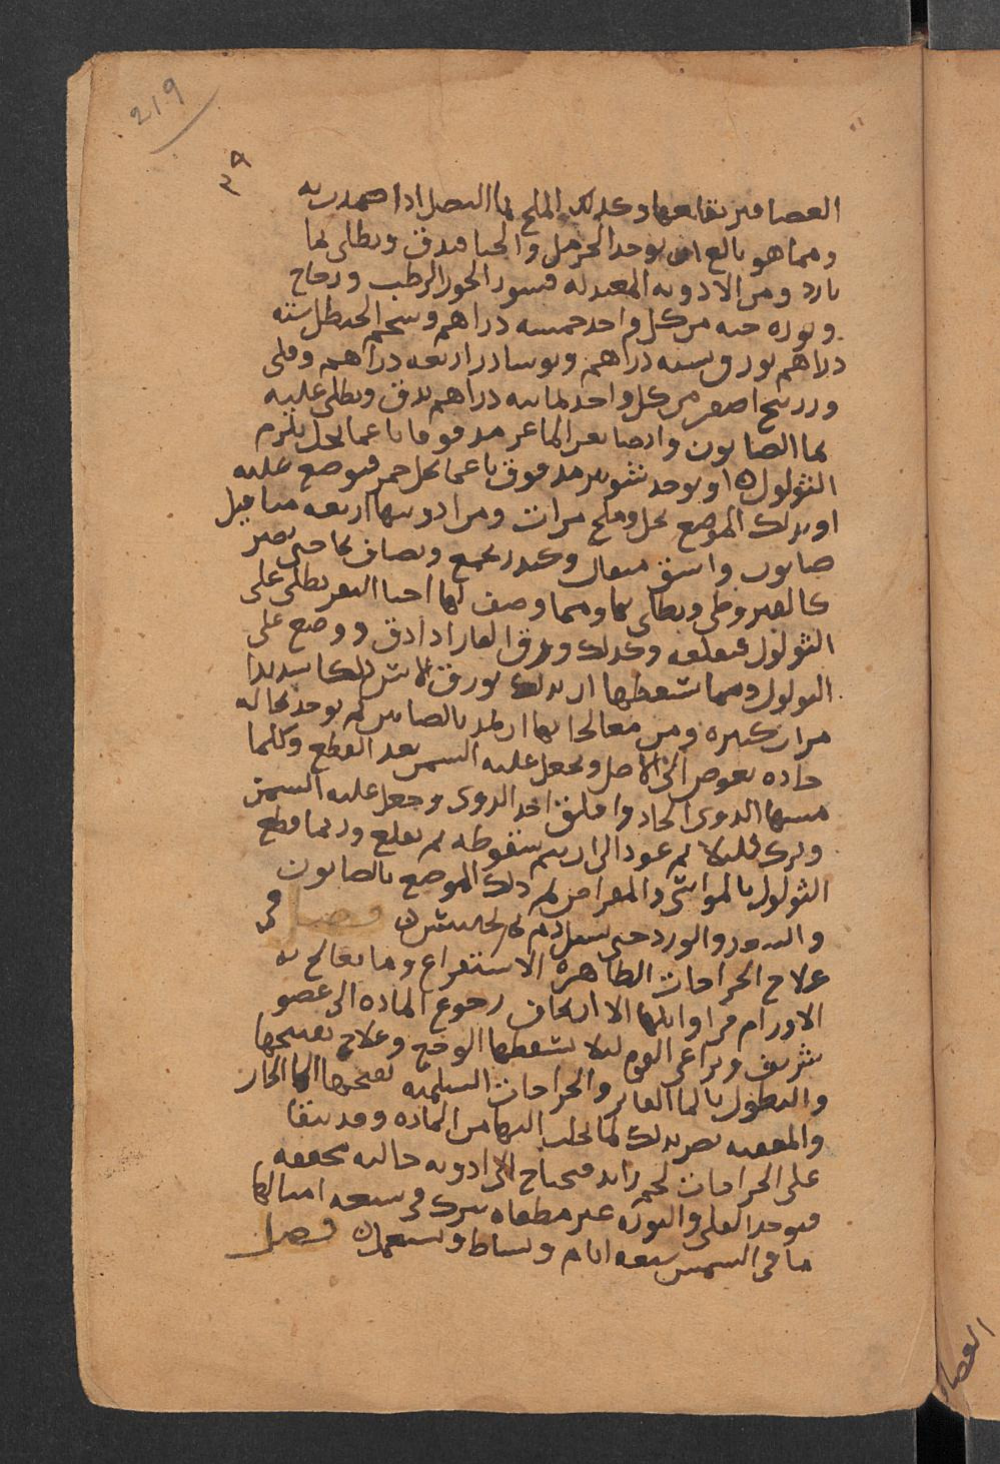 219
٣٩
العصافير يقلعها وكذلك الملح بما البصل اذا ضمدت به
ومما هو بالغ ان يوخد الحرمل والحنا فيدق ويطلى بما
بارد ومن الادويه المعتدله قشور الجوز الرطب وزجاج
ونوره حيه من كل واحد خمسه دراهم وشحم الحنظل سته
دراهم بورق سته دراهم ونوشادر اربعه دراهم وقلى
وزرنيخ اصفر من كل واحد ثمانيه دراهم يدق ويطلى عليه
بما الصابون وايضا بعر الماعز مدقوقا ناعما بخل يلزم
الثولول او يوخد شونيز مدقوق ناعما بخل خمر فيوضع عليه
او يدلك الموضع بخل وملح مرات ومن ادويتها اربعه مثاقيل
صابون واشق مثقال وكندر يجمع ويضاف بما حتى يصير
كالقيروطى ويطلى بها ومما وصف لها اخثا البقر يطلى على
الثولول فيقلعه وكذلك ورق الغار اذا دق ووضع على
الثولول ومما يسقطها ان يدلك بورق الاس دلكا شديدا
مرات كثيره ومن معالجاتها ان تمد بالصنانير ثم يوخد بحاله
حاده يغوص الى الاصل ويجعل عليه السمن بعد القطع وكلما
مسها الدوى الحاد واقلق اخذ الدوى وجعل عليه السمن
وترك قليلا ثم عود الى ان يتم سقوطه ثم يقلع وربما قطع
الثولول بالمواسى والمقراض ثم دلك الموضع بالصابون
والسدر والورد حتى يسيل دم ثم يحبس فصل في
علاج الخراجات الظاهره الاستفراغ وما يعالج به
الاورام من اوايلها الا ان يخاف رجوع الماده الى عضو
شريف ويراعى القوه ليلا يسقطها الوجع وعلاج تفتيحها
والنطول بالما الفاتر والخراجات السليمه يفتحها الما الحار
والمعفنه يضر بذلك لما يجلب اليها من الماده وقد يبقا
على الخراجات لحم زايد فيحتاج الى ادويه جاليه مجففه
فيوخد القلى والنوره غير مطفاه يترك في سبعه امثالها
ما في الشمس سبعه ايام ويساط ويستعمل فصل
العصا